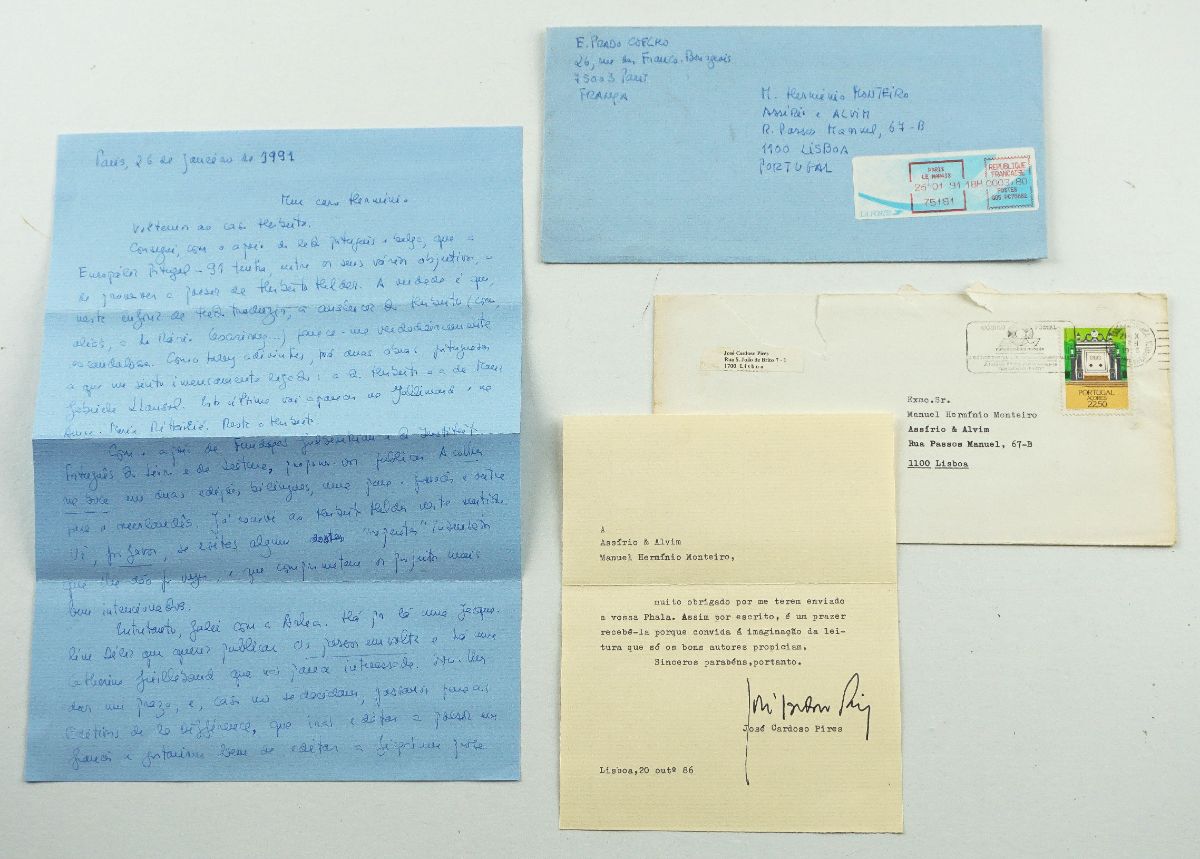 Paris, 26 de janeiro de 1991
Meu caro Hermínio,
Voltemos ao caso Herberto.
Consegui, com o apoio do lado português e belga, que a
Europália Portugal-91 tenha, entre os seus vários objetivos, o
de promover a poesia de Herberto Helder. A verdade é que,
neste enfurez de tudo traduzir, a ausência de Herberto (como,
aliás, a de Mário Cesariny...) parece-me verdadeiramente
escandalosa. Como talvez adivinhes, há duas obras portuguesas
a que me sinto imensamente ligado: a de Herberto e a de Maria
Gabriela Llansol. Esta última vai aparecer na Gallimard e na
Anne-Marie Métailié. Resta o Herberto.
Com o apoio da Fundação Gulbenkian e do Instituto
Português do Livro e da Leitura, propus-me publicar A colher
na boca em duas edições bilingues, uma para o francês e outra
para o neerlandês. Já escrevi ao Herberto Helder neste sentido.
Vê, por favor, se evitas algum "repente" inesperado
que lhe dão por vezes, e que comprometem os projetos mais
bem intencionados.
Entretanto, falei com a Arléa. Há por lá uma
que quer publicar Os passos em volta e há uma
Catherine Guillebaud que me parece interessada.
dar um prazo, e, caso não se decidam, passarei para as
Éditions de la Différence, que irá editar a poesia em
francês e gostariam bem de editar a
E. PRADO COELHO
26, rue des Francs-Bourgeois
75003 Paris
FRANÇA
M. Hermínio MONTEIRO
Assírio e ALVIM
R. Passos Manuel, 67-B
1100 LISBOA
PORTUGAL
LA POSTE
PARIS
LE MARAIS
26·01 91 18H
75151
REPUBLIQUE
FRANCAISE
0003,80
POSTES
José Cardoso Pires
Rua S. João de Brito 7-1
1700 Lisboa
CÓDIGO POSTAL
PORTUGAL
AÇORES
22.50
Exmo.Sr.
Manuel Hermínio Monteiro
Assírio & Alvim
Rua Passos Manuel, 67-B
1100 Lisboa
A
Assírio & Alvim
Manuel Hermínio Monteiro,
muito obrigado por me terem enviado
a vossa Phala. Assim por escrito, é um prazer
recebê-la porque convida é imaginação da lei-
tura que só os bons autores propiciam.
Sinceros parabéns,portanto.
José Cardoso Pires
José Cardoso Pires
Lisboa,20 outº 86